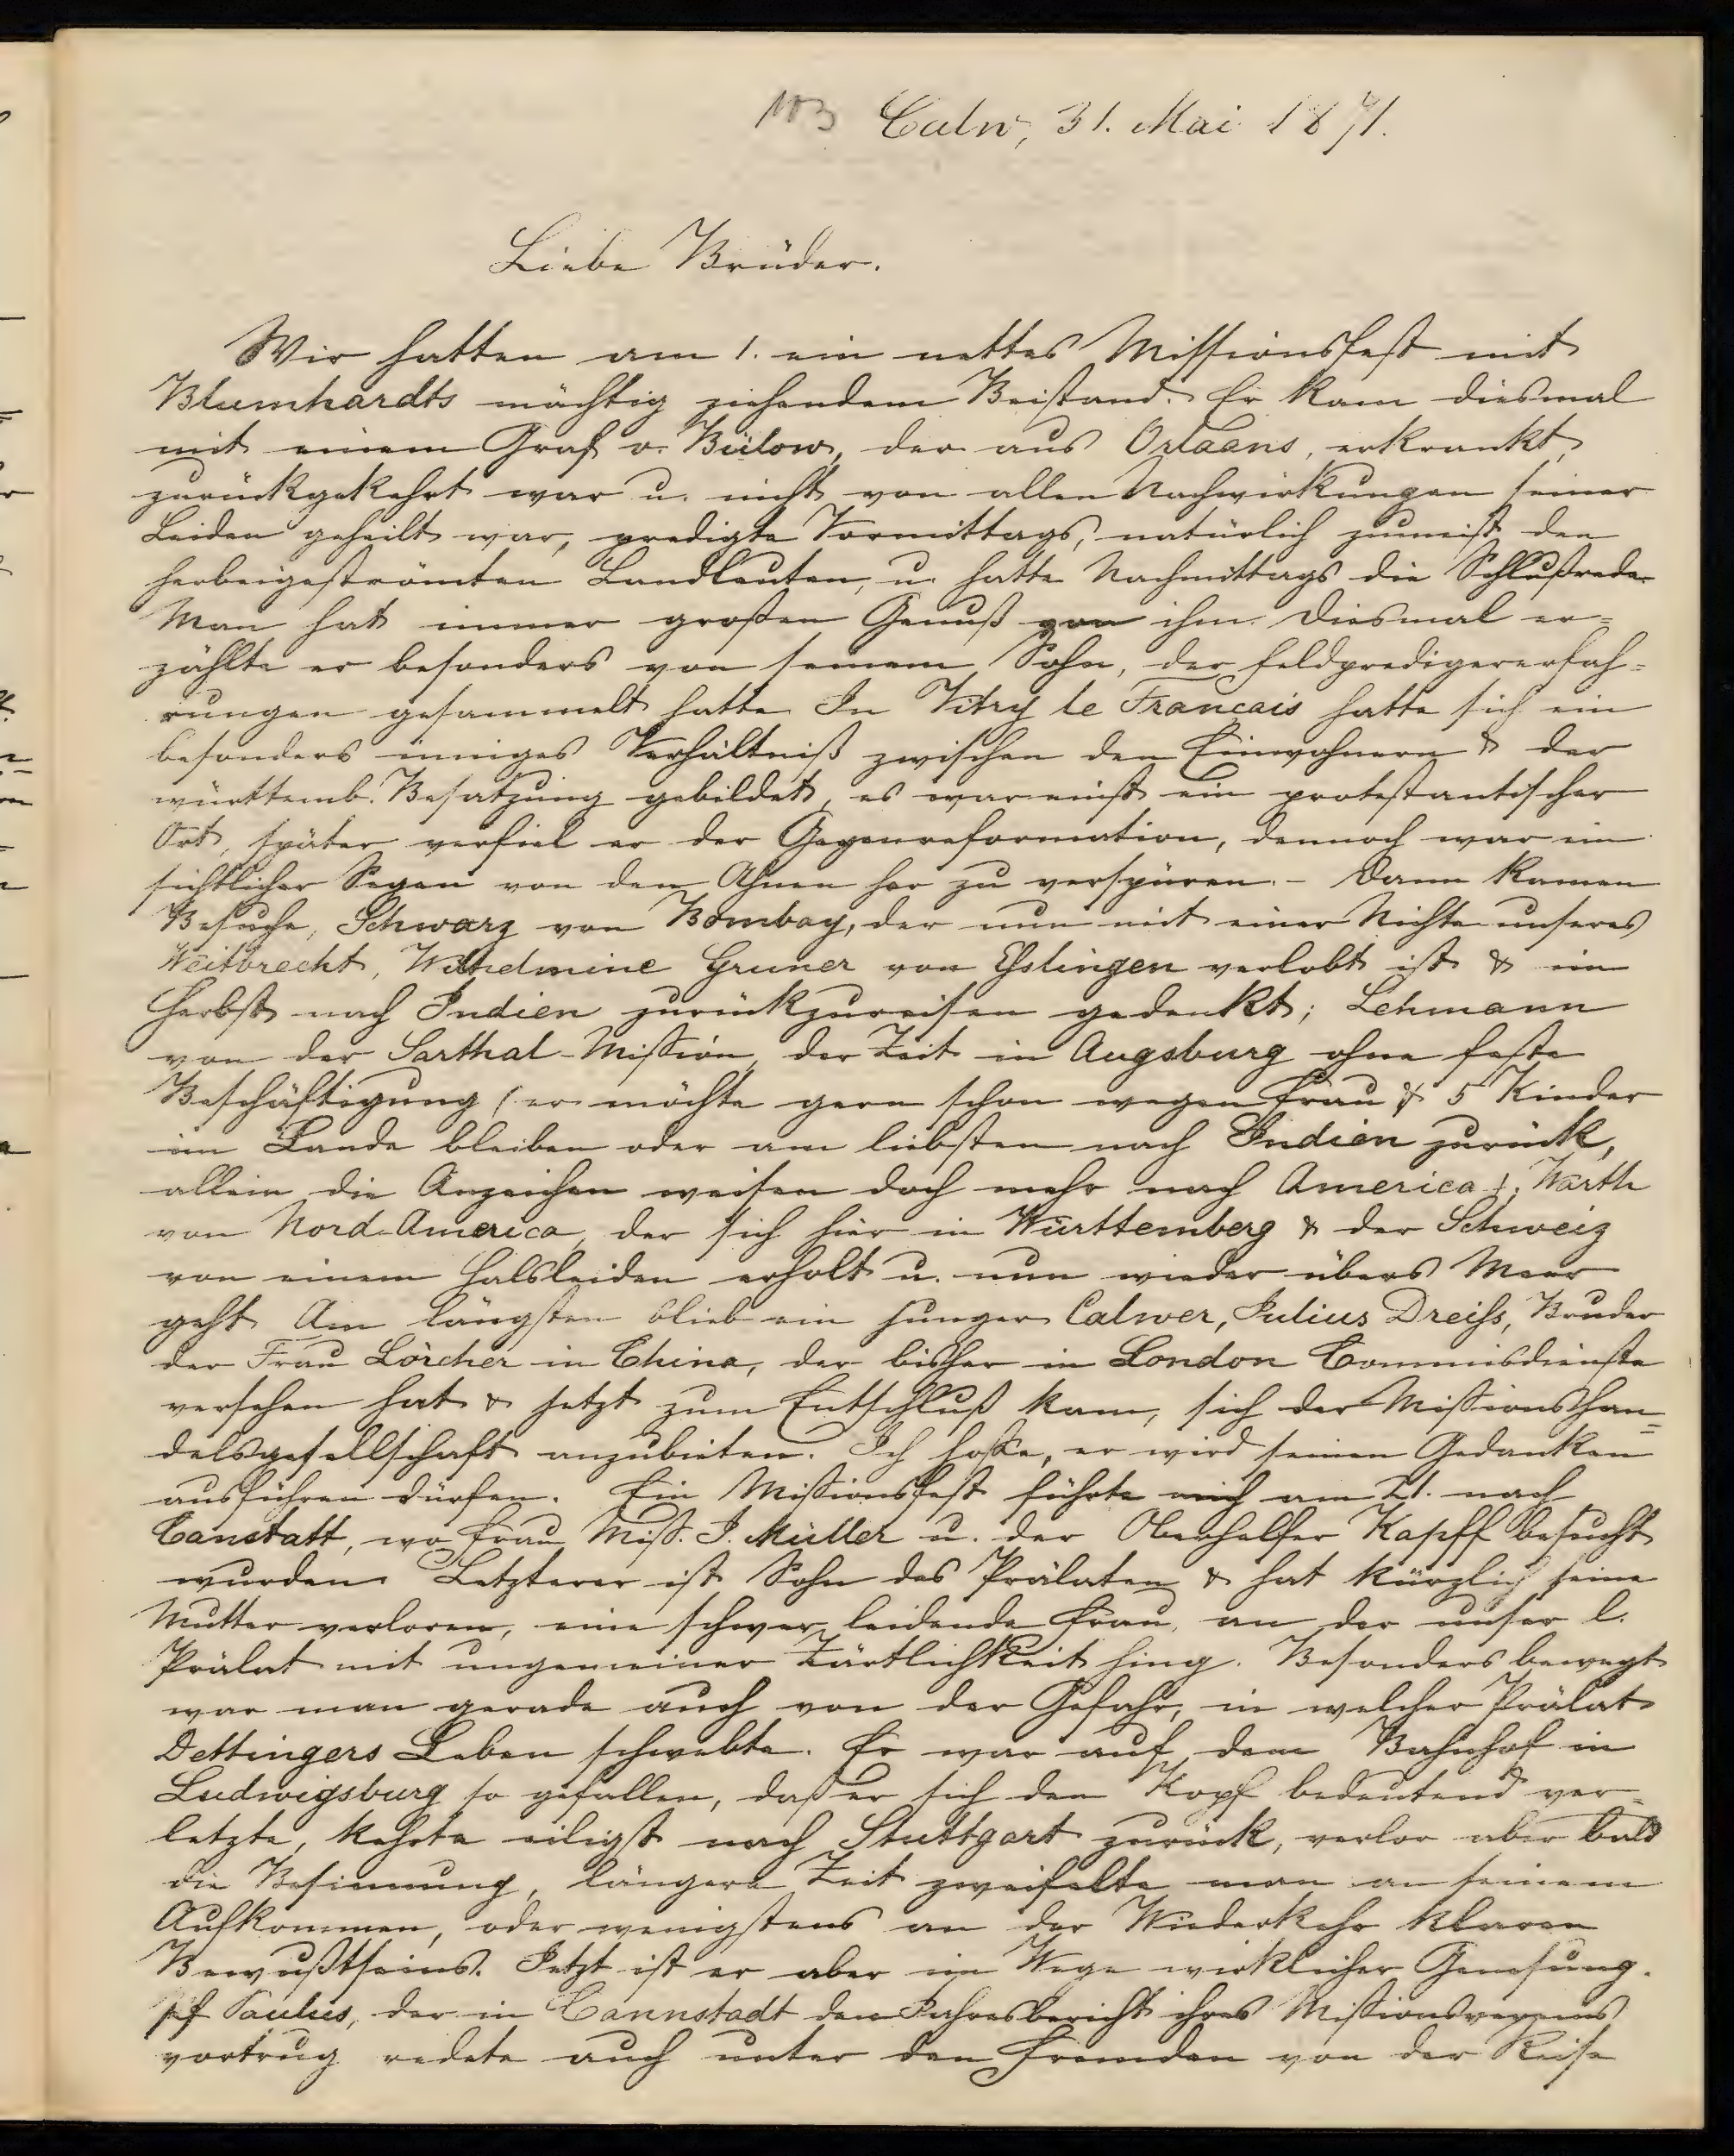 103 Calw, 31. Mai 1871.
Liebe Brüder.
Wir hatten am 1. ein nettes Missionsfest mit
Blumhardts mächtig ziehendem Beistand. Er kam diesmal
mit einem Graf v. Bülow, der aus Orleans, erkrankt,
zurückgekehrt war u. nicht von allen Nachwirkungen seiner
Leiden geheilt war, predigte Vormittags, natürlich zumeist den
herbeigeströmten Landleuten, u. hatte Nachmittags die Schlußrede.
Man hat immer großen Genuß von ihm. Diesmal er=
zählte er besonders von seinem Sohn, der Feldpredigererfah=
rungen gesammelt hatte. In Vitry le Francais hatte sich ein
besonders inniges Verhältniß zwischen den Einwohnern & der
württemb. Besatzung gebildet, es war einst ein protestantischer
Ort, später verfiel er der Gegenreformation, dennoch war ein
sichtlicher Segen von den Ahnen her zu verspüren. - Dann kamen
Besuche, Schwarz von Bombay, der nun mit einer Nichte unseres
Weitbrecht, Wilhelmine Gruner von Esslingen verlobt ist & im
Herbst nach Indien zurückzureisen gedenkt; Lehmann
von der Sarthal-Mission, der Zeit in Augsburg ohne feste
Beschäftigung (er möchte gern schon wegen Frau & 5 Kinder
im Lande bleiben oder am liebsten nach Indien zurück,
allein die Anzeichen weisen doch mehr nach America); Warth
von Nord-America, der sich hier in Württemberg & der Schweiz
von einem Halsleiden erholt u. nun wieder übers Meer
geht. Am längsten blieb ein junger Calwer, Julius Dreiss, Bruder
der Frau Lörcher in China, der bisher in London Commisdienste
versehen hat & jetzt zum Entschluß kam, sich der Missionshan=
delsgesellschaft anzubieten. Ich hoffe, er wird seinen Gedanken
ausführen dürfen. Ein Missionsfest führte mich am 21. nach
Canstatt, wo Frau Miss. J. Müller u. der Oberhelfer Kapff besucht
wurden. Letzterer ist Sohn des Prälaten & hat kürzlich seine
Mutter verloren, eine schwer leidende Frau, an der unser l.
Prälat mit ungemeiner Zärtlichkeit hing. Besonders bewegt
war man gerade auch von der Gefahr, in welcher Prälat
Dettingers Leben schwebte. Er war auf dem Bahnhof in
Ludwigsburg so gefallen, daß er sich den Kopf bedeutend ver=
letzte, kehrte eiligst nach Stuttgart zurück, verlor aber bald
die Besinnung, längere Zeit zweifelte man an seinem
Aufkommen, oder wenigstens an der Wiederkehr klaren
Bewußtseins. Jetzt ist er aber im Wege wirklicher Genesung.
Pf Paulus, der in Cannstadt den Jahresbericht ihres Missionsvereins
vortrug redete auch unter den Fremden von der Reise